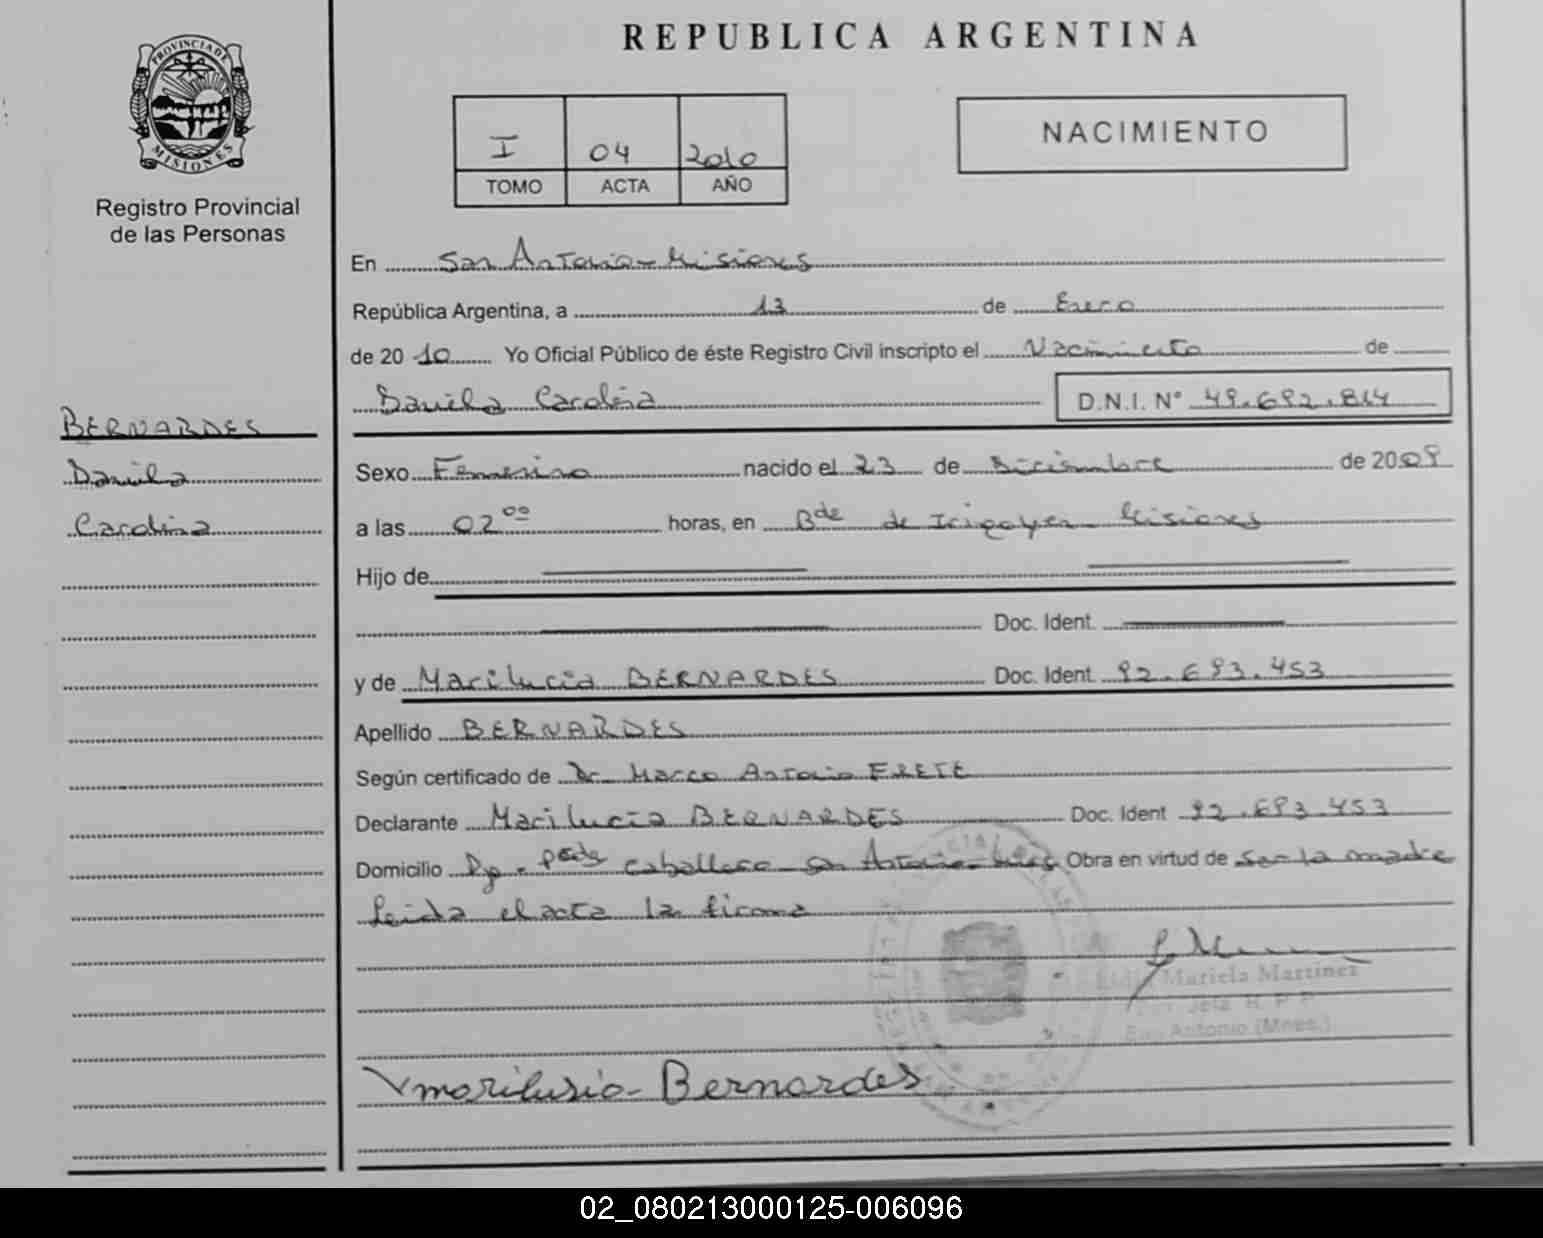 PROVINCIA DE
MISIONES
Registro Provincial
de las Personas
BERNARDES
Daniela
Carolina
REPUBLICA ARGENTINA
I 04 2010
TOMO ACTA AÑO
NACIMIENTO
En San Antonio - Misiones
República Argentina, a 13 de Enero
de 20 10 Yo Oficial Público de éste Registro Civil inscripto el Nacimiento de
Daniela Carolina D.N.I. N° 49.692.814
Sexo Femenino nacido el 23 de Diciembre de 2009
a las 02 00 horas, en Bde de Irigoyen Misiones
Hijo de
Doc. Ident.
y de Marilucia BERNARDES Doc. Ident. 92.693.453
Apellido BERNARDES
Según certificado de Dr. Marco Antonio
Declarante Marilucia BERNARDES Doc. Ident 92.693.453
Domicilio Caballero San Antonio Obra en virtud de ser la madre
Leida el acta la firma
Mariela Martinez
Jefa R. P. P.
San Antonio (Mnes.)
marilusia Bernardes
02_080213000125-006096